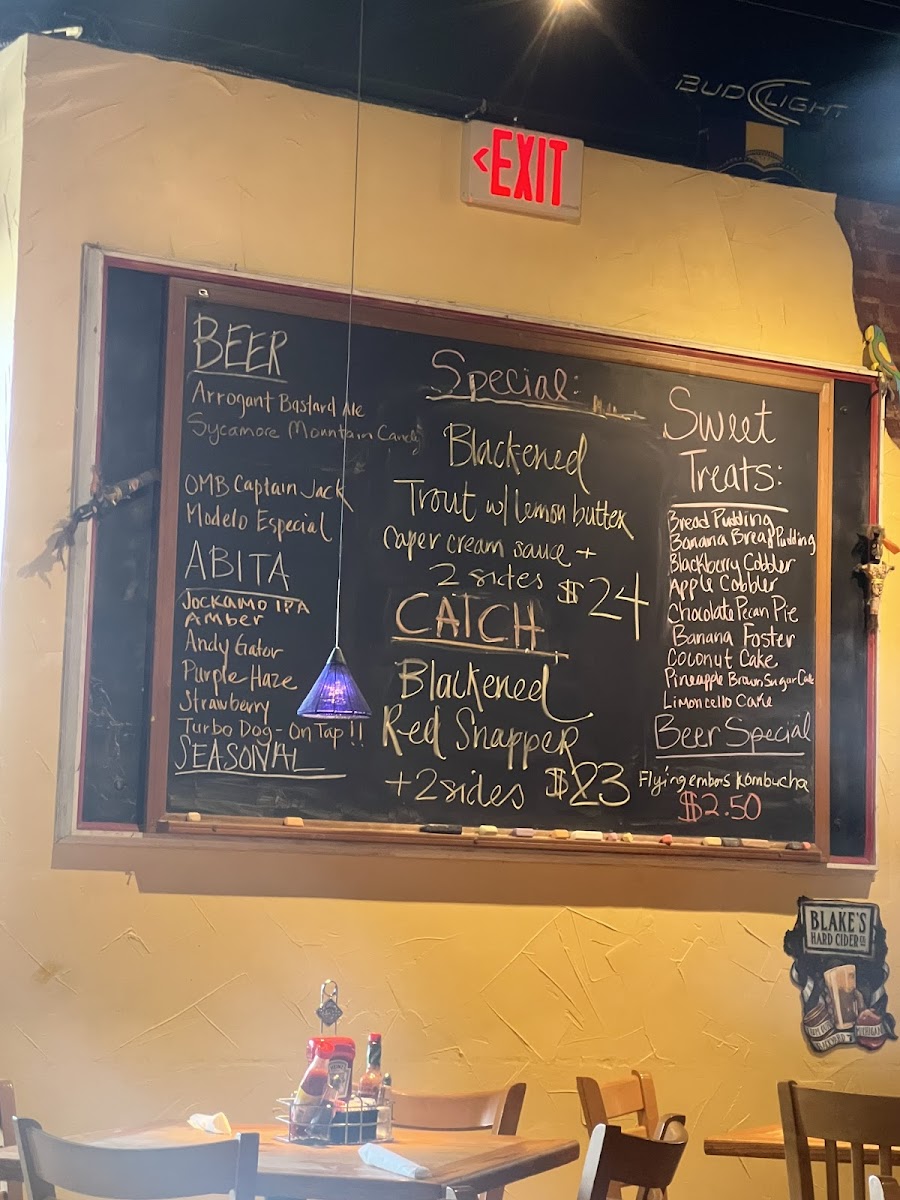 BUD LIGHT
<EXIT
BEER
Arrogant Bastard Ale
Sycamore Mountain Candy
OMB Captain Jack
Modelo Especial
ABITA
Jockamo IPA
Amber
Andy Gator
Purple Haze
Strawberry
Turbo Dog - On Tap!!
SEASONAL
Special:
Blackened
Trout w/ lemon butter
caper cream sauce +
2 sides $24
CATCH
Blackened
Red Snapper
+2 sides $23
Sweet
Treats:
Bread Pudding
Banana Bread Pudding
Blackberry Cobbler
Apple Cobbler
Chocolate Pecan Pie
Banana Foster
Coconut Cake
Pineapple Brown Sugar Cake
Limoncello Cake
Beer Special
Flying embors Kombucha
$2.50
BLAKE'S
HARD CIDER CO
MICHIGAN
HEINZ